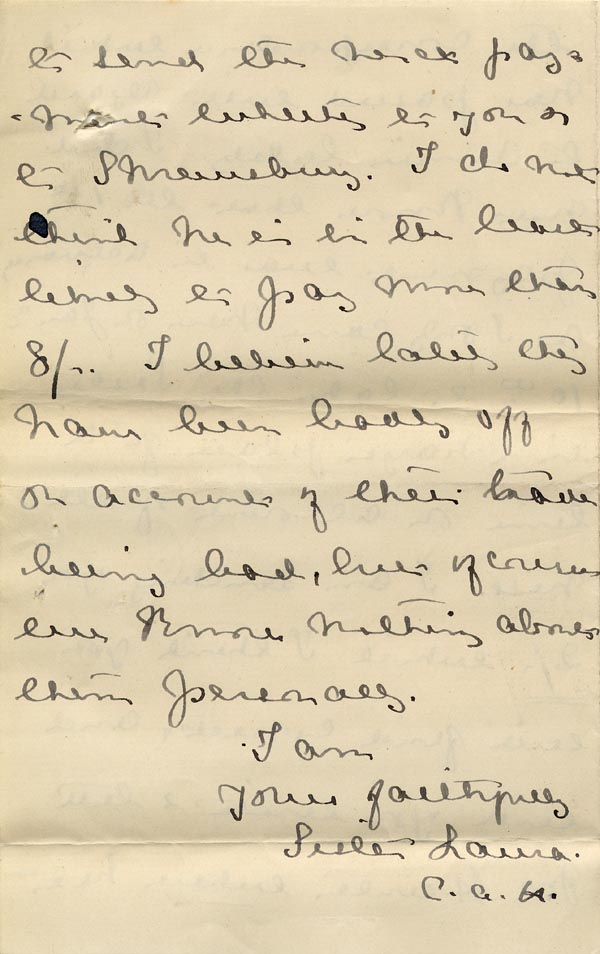 to send the next pay=
=ment whether to you or
to Shrewsbury. I do not
think he is in the least
likely to pay more than
8/-. I believe lately they
have been badly off
on account of their trade
being bad, but of course
we know nothing about
them personally.
I am
Yours faithfully
Sister Laura.
C.A.H.